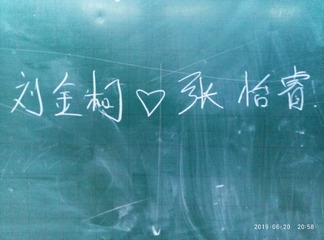 刘金柯♡张怡睿
2019-06-20 20:58